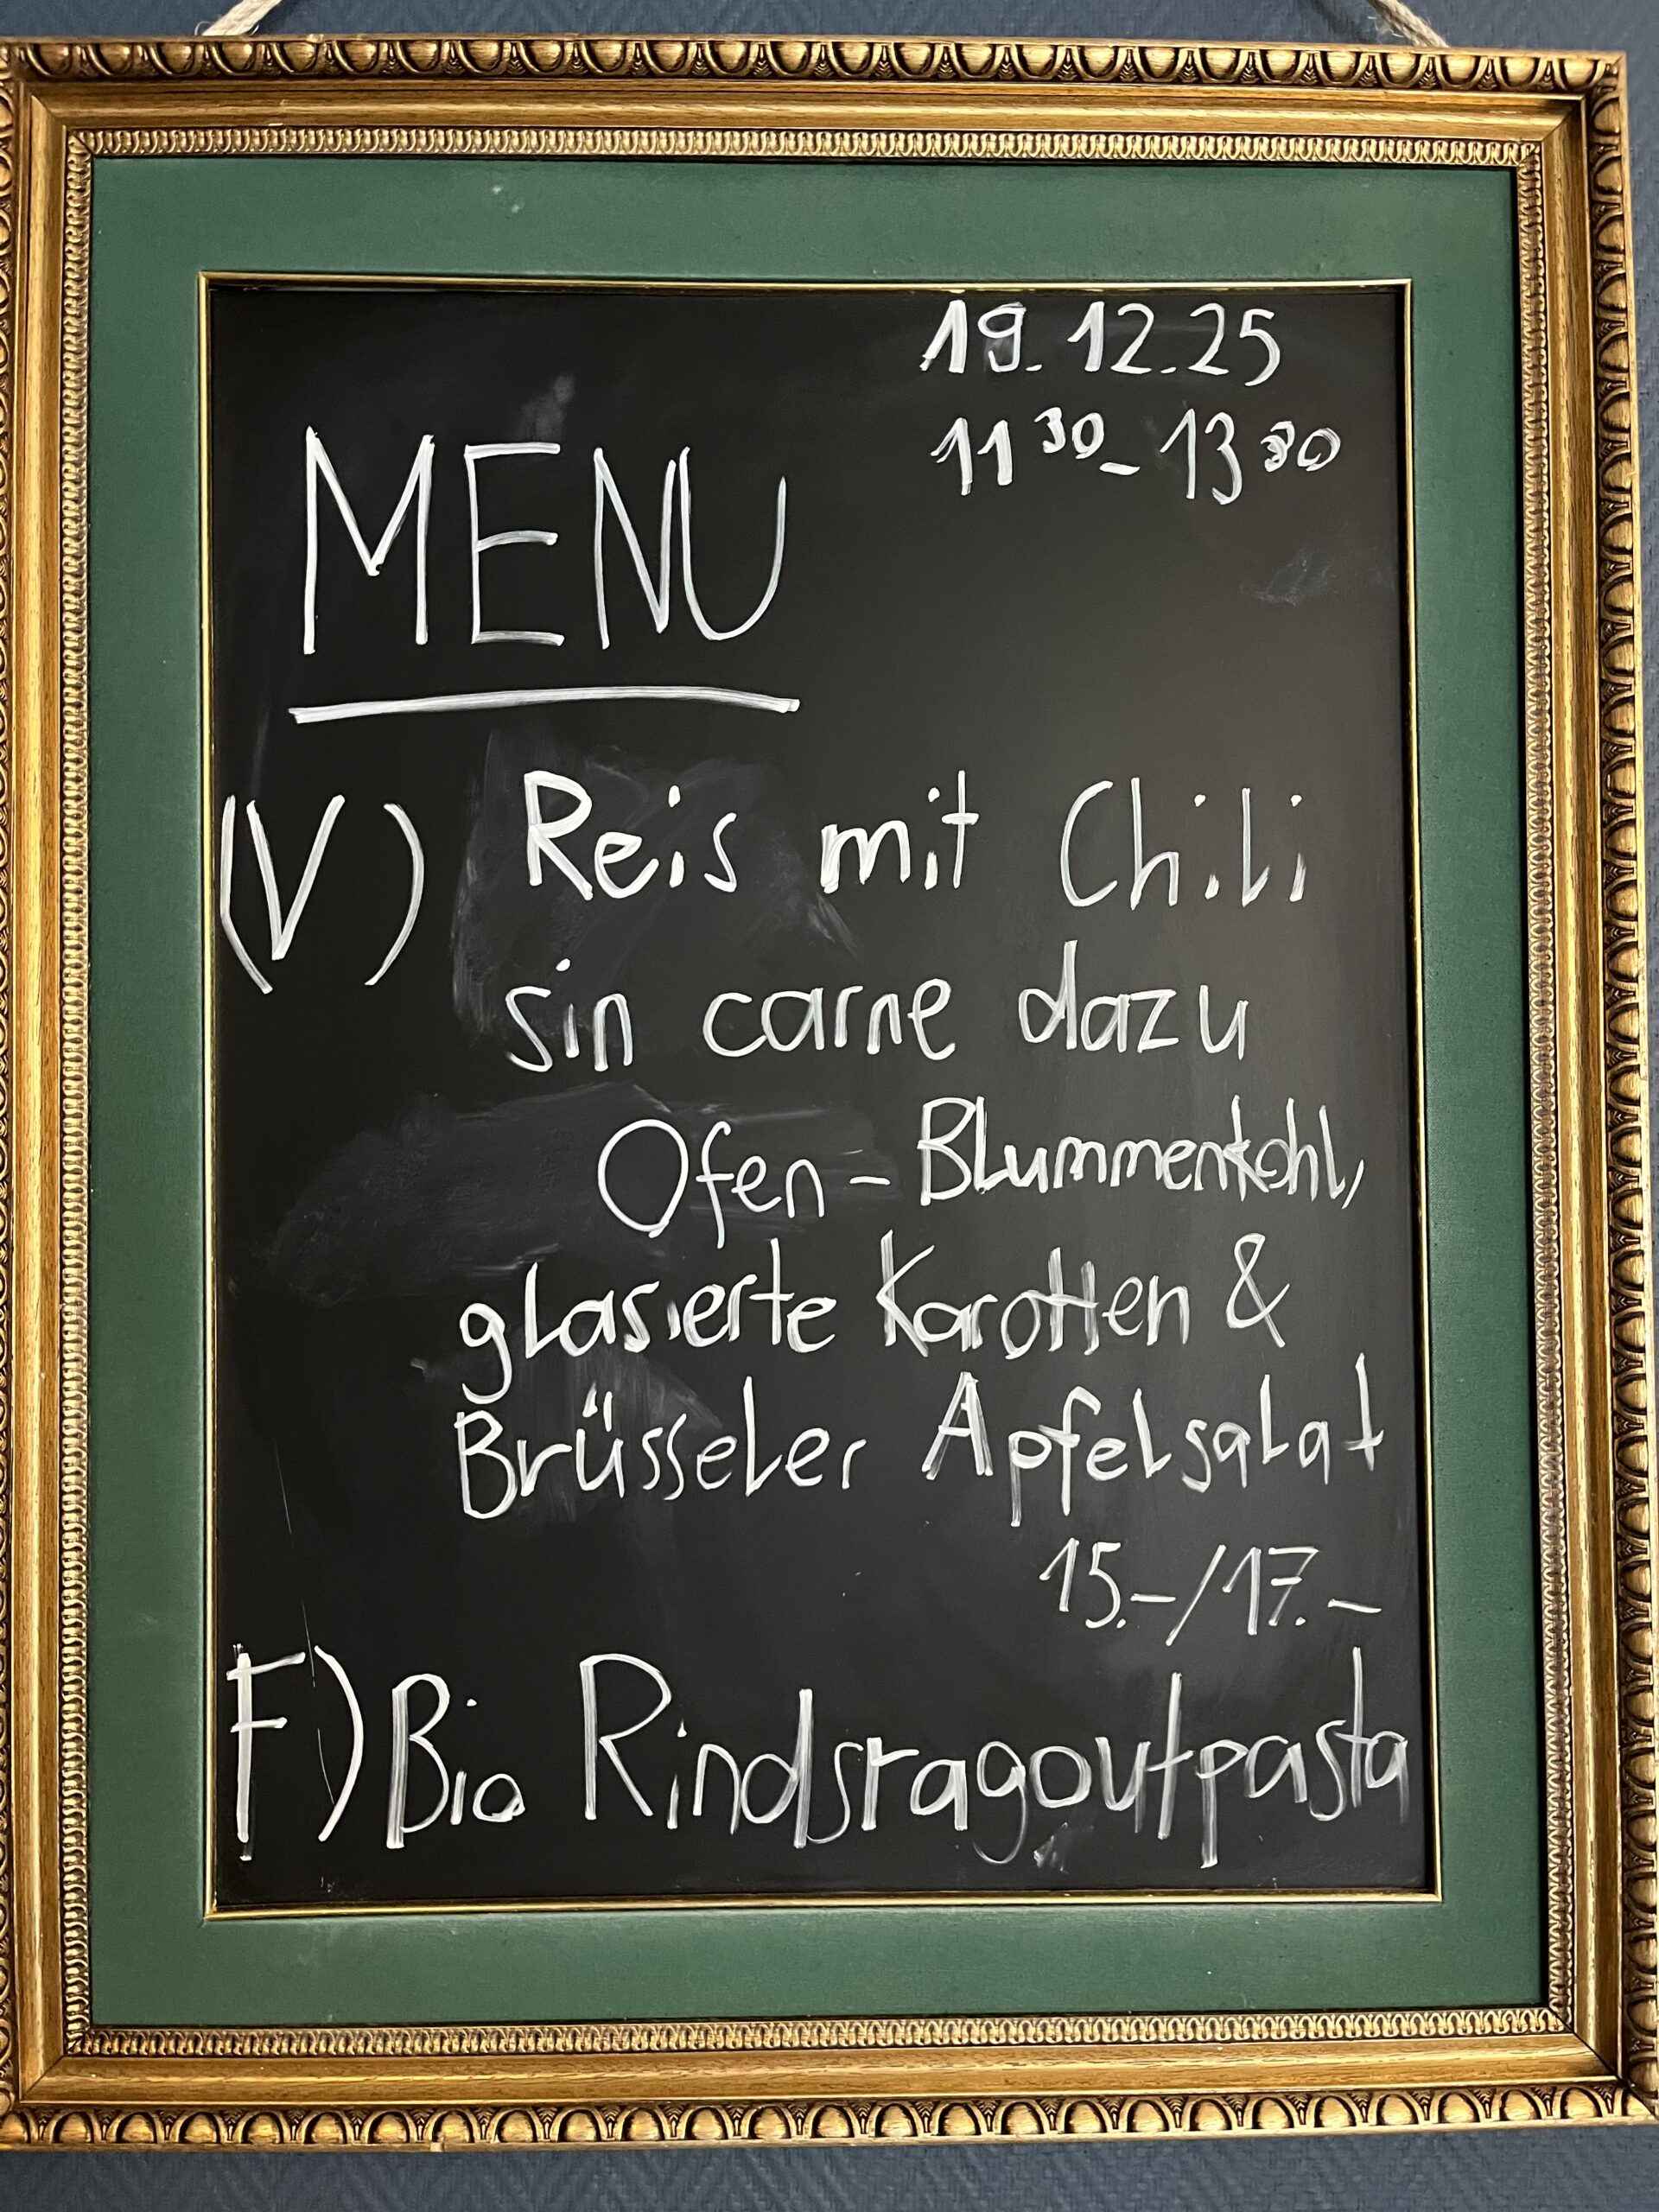 19.12.25
11 30 - 13 30
MENU
(V) Reis mit Chili
sin carne dazu
Ofen - Blummenkohl,
glasierte Karotten &
Brüsseler Apfelsalat
15.-/17.-
F) Bio Rindsragoutpasta